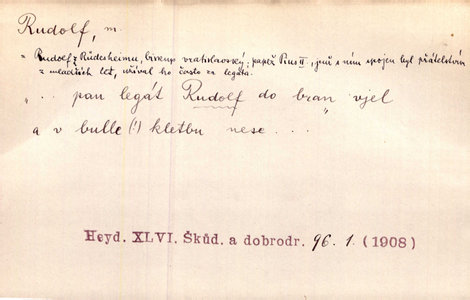 Rudolf, m.
" Rudolf z Rüdesheimu, biskup vratislavský; papež Pius II, jenž s ním spojen byl přátelstvím
z mladších let, užíval ho často za legáta.
".. pan legát Rudolf do bran vjel
a v bulle (!) kletbu nese..."
Heyd. XLVI. Škůd. a dobrodr. 96. 1. (1908)